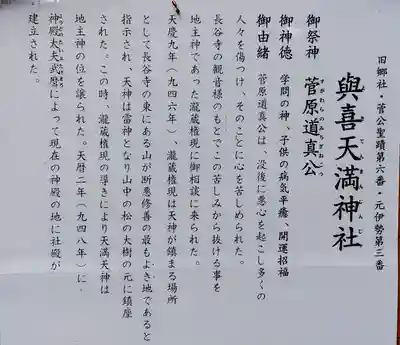 旧郷社・菅公聖蹟第六番・元伊勢第三番
與喜天満神社
御祭神 菅原道真公
御神徳 学問の神、子供の病気平癒、開運招福
御由緒 菅原道真公は、没後に悪心を起こし多くの
人々を傷つけ、そのことに心を苦しめられた。
長谷寺の観音様のもとでこの苦しみから抜ける事を
地主神であった瀧蔵権現に御相談に来られた。
天慶九年（九四六年）、瀧蔵権現は天神が鎮まる場所
として長谷寺の東にある山が断悪修善の最もよき地であると
指示され、天神は雷神となり山中の松の大樹の元に鎮座
された。この時、瀧蔵権現の導きにより天満天神は
地主神の位を譲られた。天暦二年（九四八年）に、
神殿太夫武麿によって現在の神殿の地に社殿が
建立された。